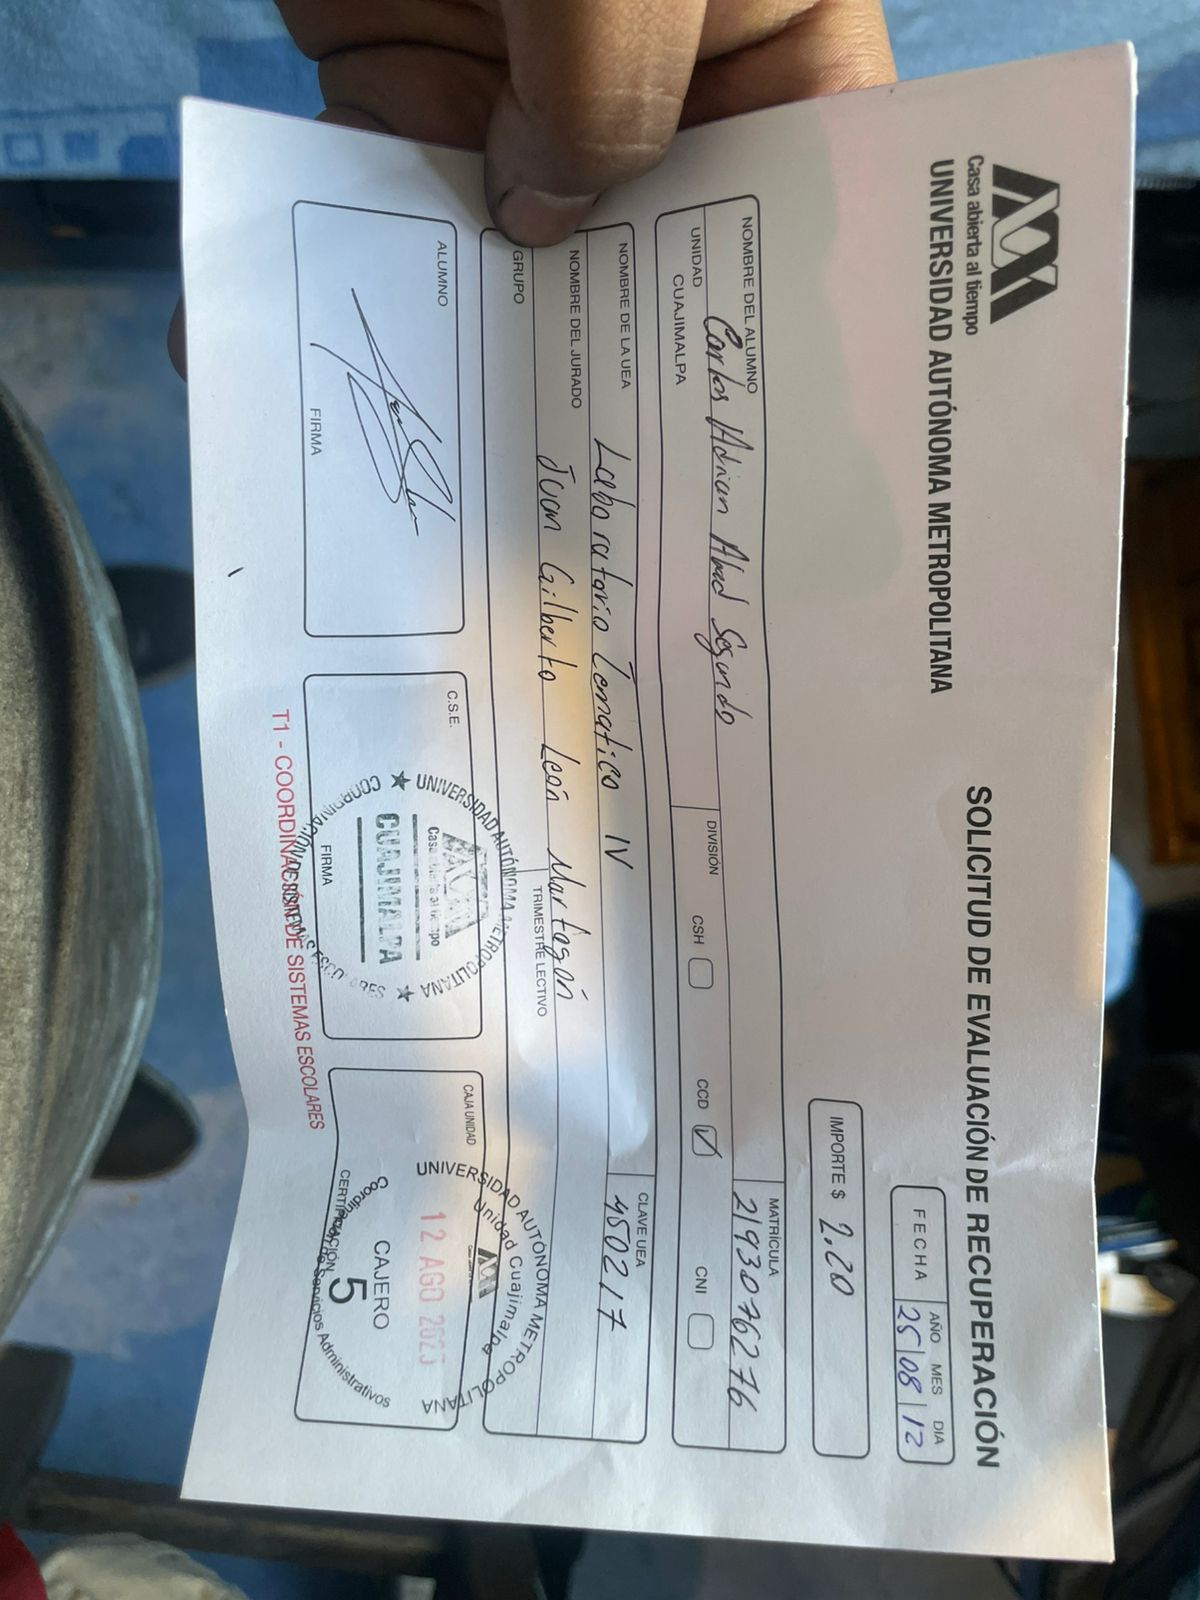 Casa abierta al tiempo
UNIVERSIDAD AUTÓNOMA METROPOLITANA
SOLICITUD DE EVALUACIÓN DE RECUPERACIÓN
FECHA AÑO MES DIA
25 08 12
IMPORTE $ 2.20
NOMBRE DEL ALUMNO
Carlos Adrian Abad Segundo
MATRÍCULA
2193076276
UNIDAD
CUAJIMALPA
DIVISIÓN
CSH
CCD
CNI
NOMBRE DE LA UEA
Laboratorio Tematico IV
CLAVE UEA
450217
NOMBRE DEL JURADO
Juan Gilberto León Martagón
GRUPO
TRIMESTRE LECTIVO
ALUMNO
FIRMA
C.S.E.
UNIVERSIDAD AUTÓNOMA METROPOLITANA
Casa abierta al tiempo
CUAJIMALPA
COORDINACIÓN DE SISTEMAS ESCOLARES
FIRMA
CAJA UNIDAD
UNIVERSIDAD AUTÓNOMA METROPOLITANA
Unidad Cuajimalpa
12 AGO 2025
CAJERO
5
Coordinación de Servicios Administrativos
CERTIFICACIÓN
T1 - COORDINACIÓN DE SISTEMAS ESCOLARES